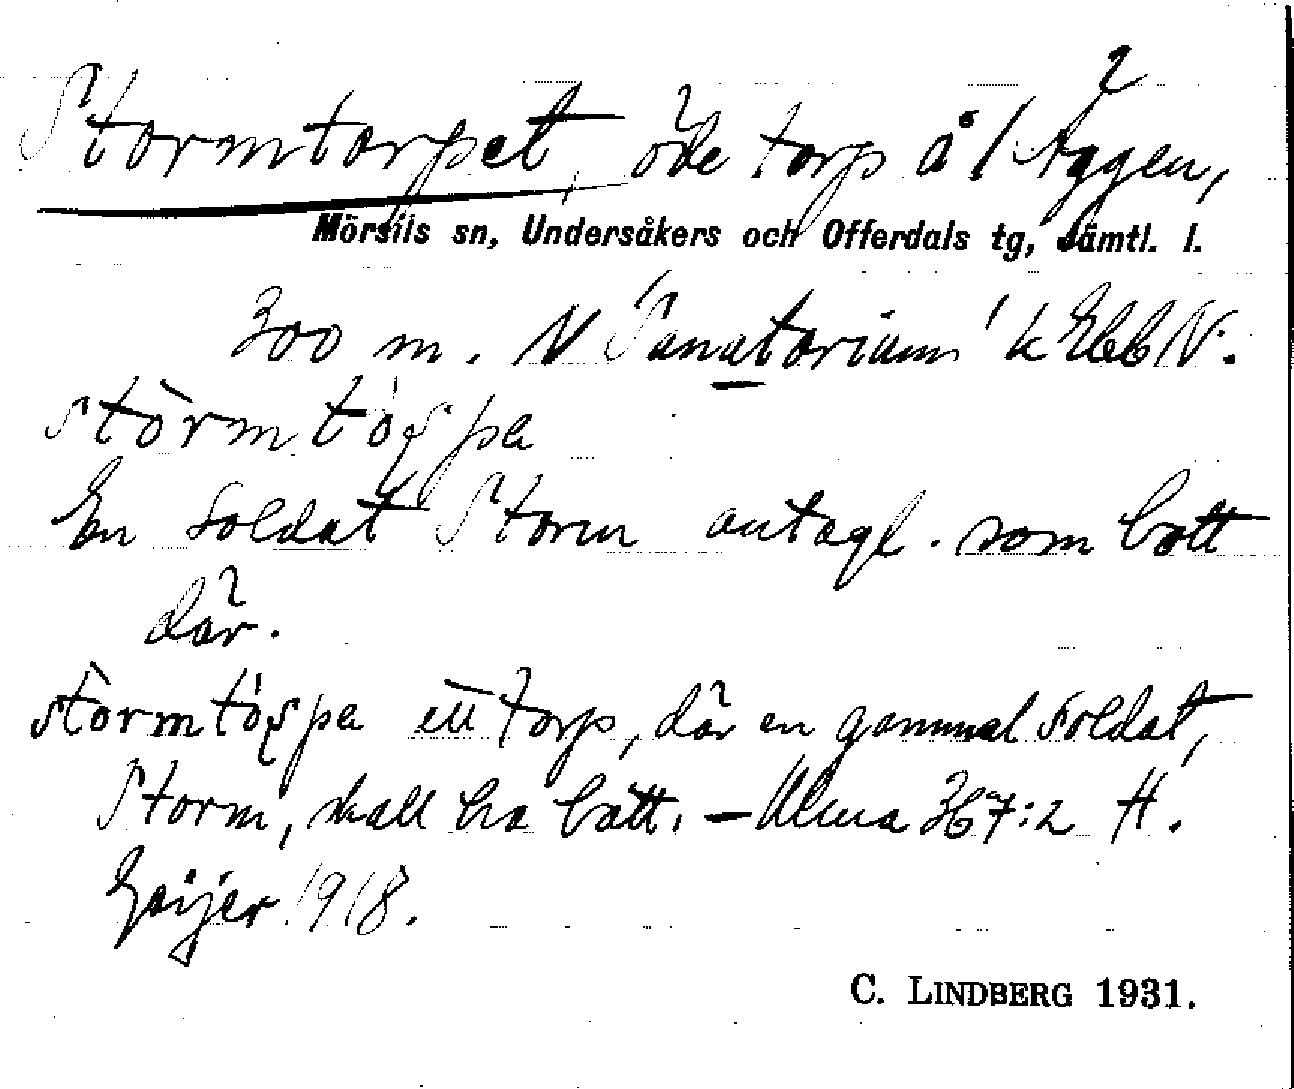 Stormtorpet, öde torp å 1 Äggen,
Mörsils sn, Undersåkers och Offerdals tg, Jämtl. l.
300 m. N Sanatorium k Ebb N.
stòrmtòʂpa
En soldat Storm antagl. som bott
där.
stòrmtòʂpa ett torp, där en gammal soldat,
Storm, skall ha bott. – Ulma 367:2 H.
Geijer 1918.
C. LINDBERG 1931.